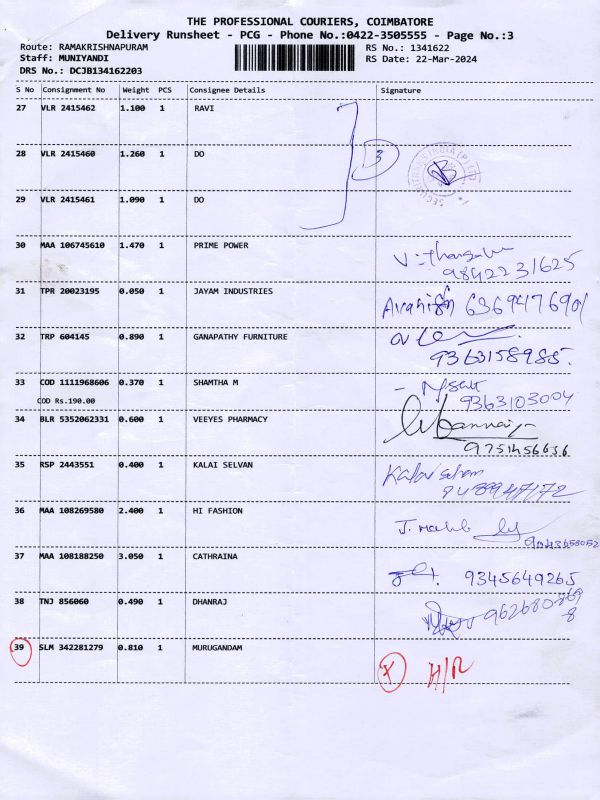 THE PROFESSIONAL COURIERS, COIMBATORE
Delivery Runsheet - PCG - Phone No.:0422-3505555 - Page No.:3
Route: RAMAKRISHNAPURAM
RS No.: 1341622
Staff: MUNIYANDI
RS Date: 22-Mar-2024
DRS No.: DCJB134162203
S No Consignment No Weight PCS Consignee Details Signature
27 VLR 2415462 1.100 1 RAVI
28 VLR 2415460 1.260 1 DO 3
29 VLR 2415461 1.090 1 DO
30 MAA 106745610 1.470 1 PRIME POWER
9842231625
31 TPR 20023195 0.050 1 JAYAM INDUSTRIES
32 TRP 604145 0.890 1 GANAPATHY FURNITURE
9363158985.
33 COD 1111968606 0.370 1 SHAMTHA M
COD Rs.190.00 9363103004
34 BLR 5352062331 0.600 1 VEEYES PHARMACY
9751456636
35 RSP 2443551 0.400 1 KALAI SELVAN
36 MAA 108269580 2.400 1 HI FASHION
37 MAA 108188250 3.050 1 CATHRAINA
9345649265
38 TNJ 856060 0.490 1 DHANRAJ
39 SLM 342281279 0.810 1 MURUGANDAM
X H/R